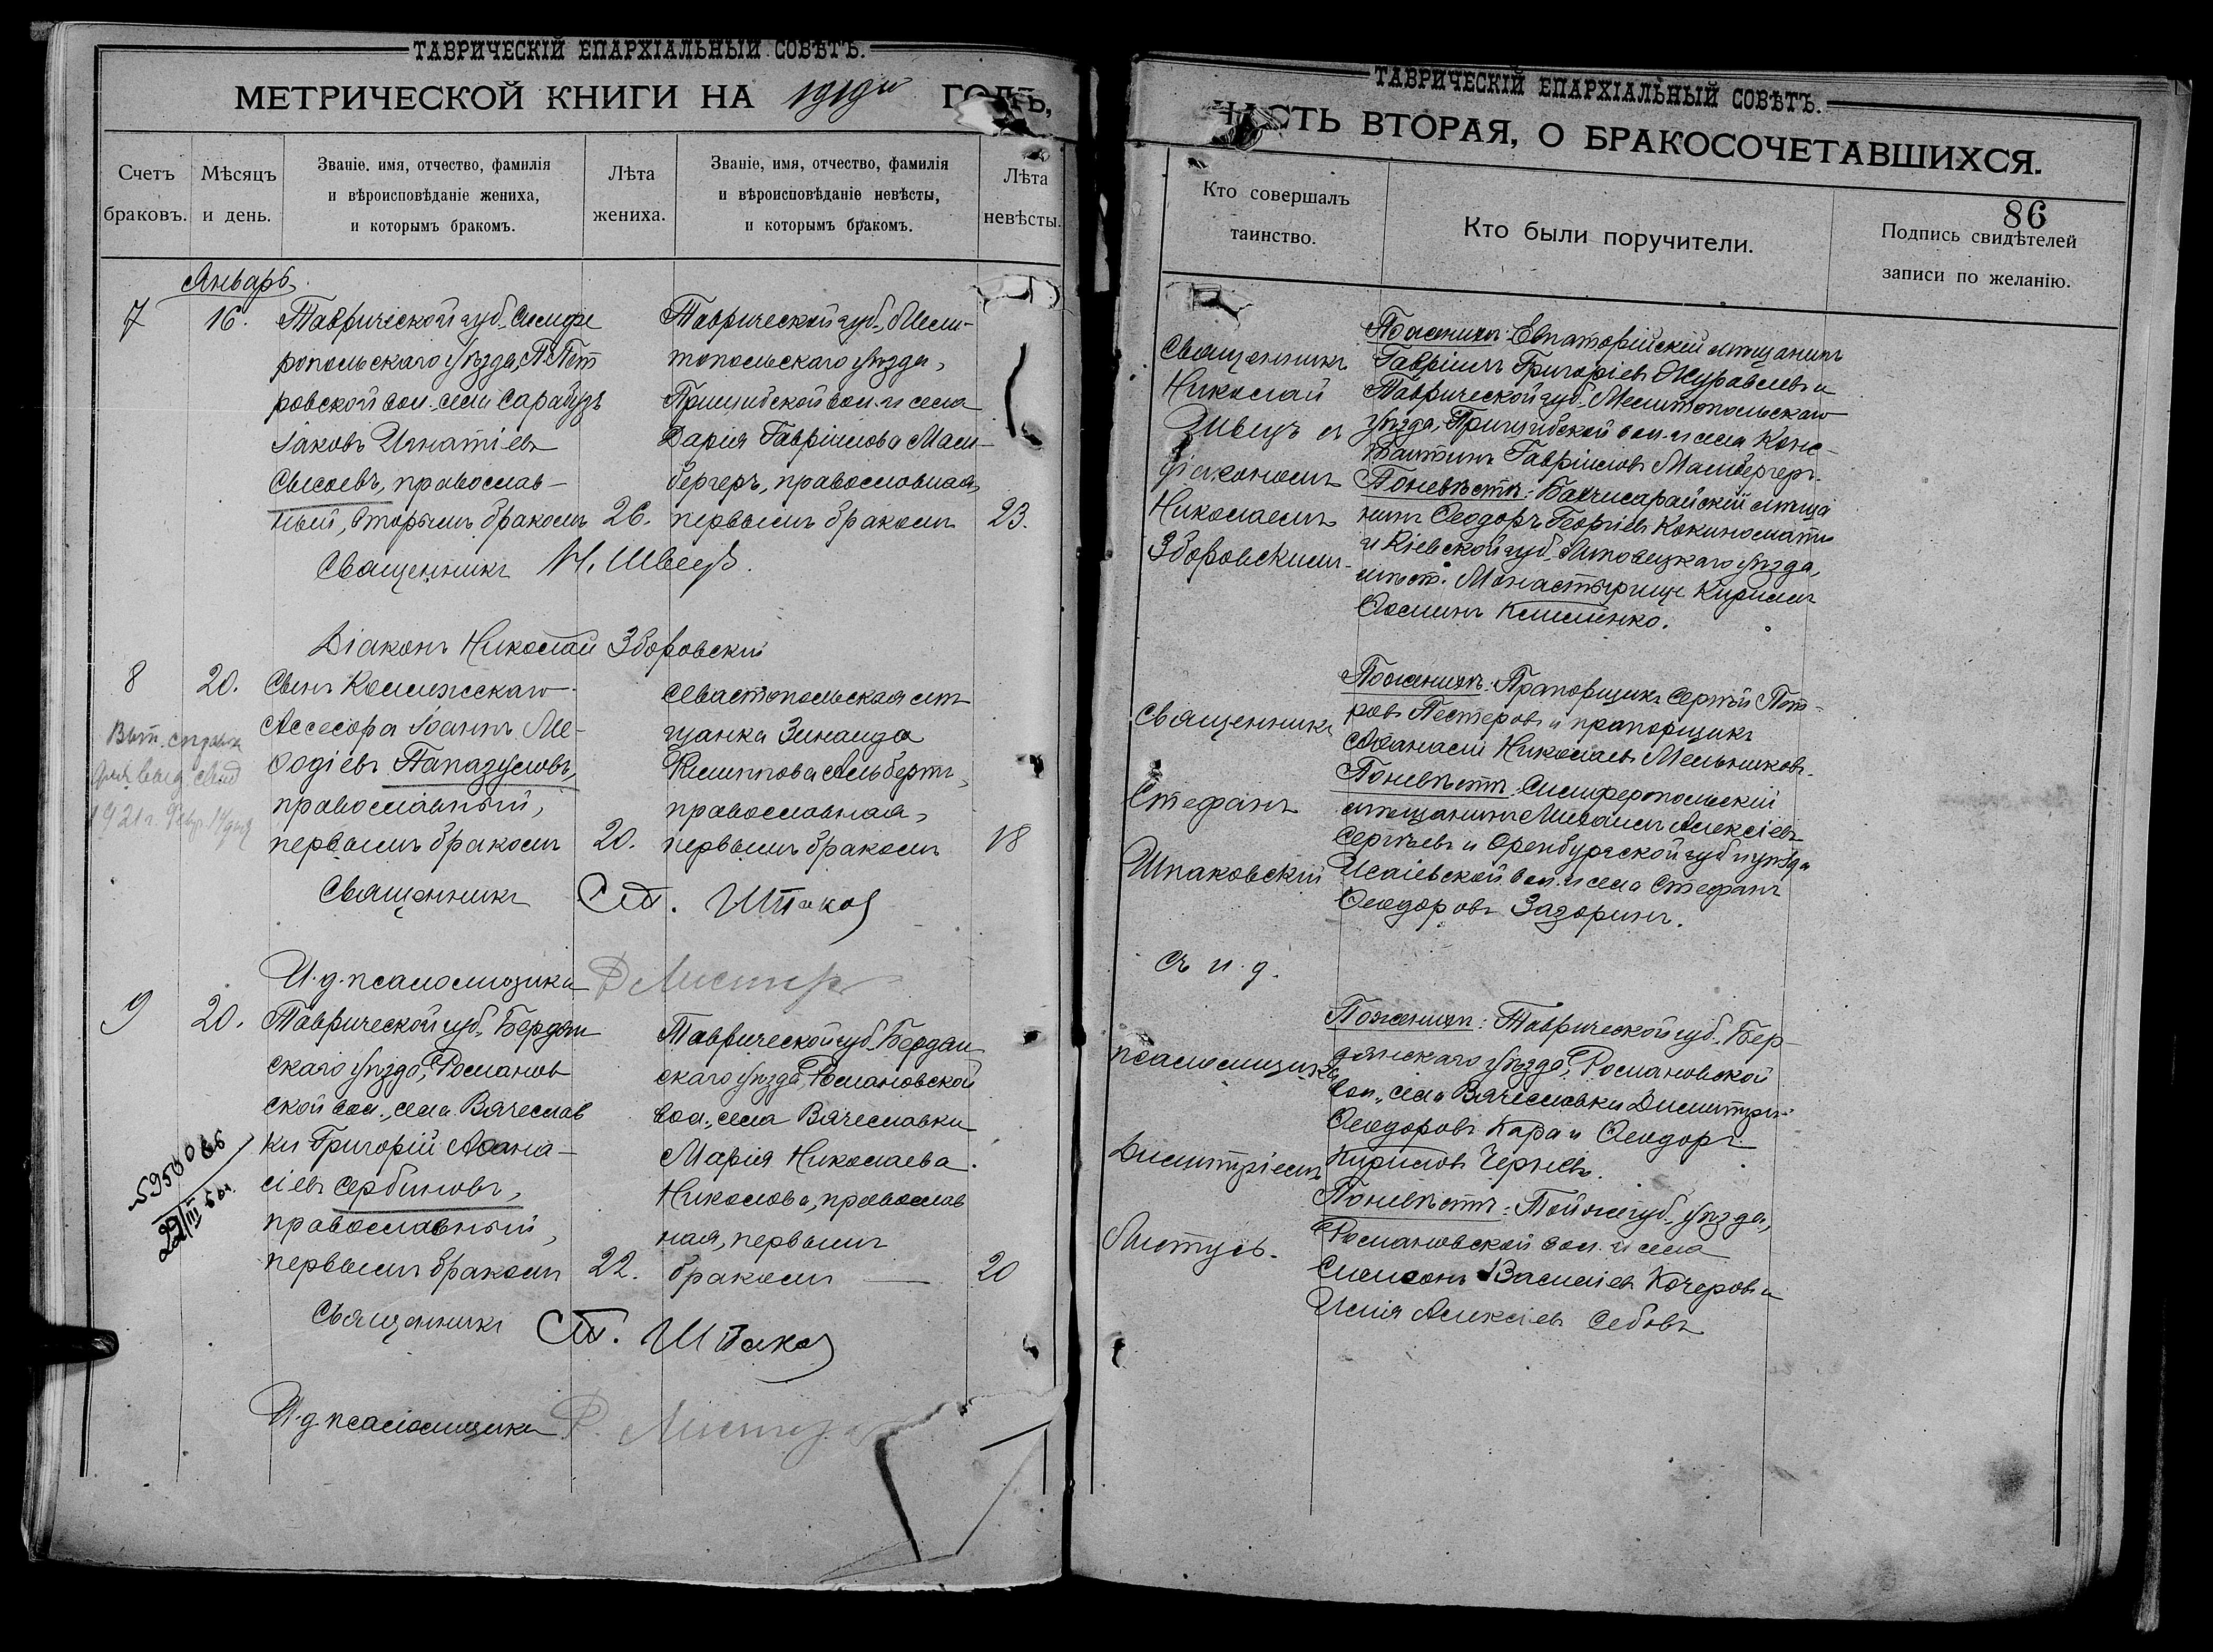 ТАВРИЧЕСКІЙ ЕПАРХІАЛЬНЫЙ СОВѢТЪ.
МЕТРИЧЕСКОЙ КНИГИ НА 1919й ГОДЪ,
Счетъ браковъ.
Мѣсяцъ и день.
Званіе, имя, отчество, фамилія
и вѣроисповѣданіе жениха,
и которымъ бракомъ.
Лѣта жениха.
Званіе, имя, отчество, фамилія
и вѣроисповѣданіе невѣсты,
и которымъ бракомъ.
Лѣта невѣсты.
Январь.
7
16.
Таврической губ., Симфе
ропольскаго уѣзда, П. Пет
ровской вол. села Сарабузъ
Іаковъ Игнатіевъ
Сысоевъ, православ-
ный, вторымъ бракомъ
26.
Таврической губ., Мели-
топольскаго уѣзда,
Пришибской вол. и села
Дарія Гавріилова Маш-
бергеръ, православная,
первымъ бракомъ
23.
Священникъ Н. Швецъ.
Діаконъ Николай Зборовскій
8
20.
Сынъ Коллежскаго
Ассесора Іоаннъ Ме-
ѳодіевъ Папазусловъ,
православный,
первымъ бракомъ
20.
Севастопольская мѣ
щанка Зинаида
Филиппова Альбертъ,
православная,
первымъ бракомъ
18
1921 г.
Священникъ Ст. Шпаков
И. д. псаломщика Д Листу
9
20.
Таврической губ., Бердян
скаго уѣзда, Романов
ской вол., села Вячеслав
ки Григорій Аѳана-
сіевъ Сербиновъ,
православный,
первымъ бракомъ
22.
Таврической губ. Бердян
скаго уѣзда, Романовской
вол., села Вячеславки
Марія Николаева
Николова, православ
ная, первымъ
бракомъ —
20
Священникъ Ст. Шпаков
И. д. псаломщика Д. Листу
ТАВРИЧЕСКІЙ ЕПАРХІАЛЬНЫЙ СОВѢТЪ.
ЧАСТЬ ВТОРАЯ, О БРАКОСОЧЕТАВШИХСЯ.
86
Кто совершалъ
таинство.
Кто были поручители.
Подпись свидѣтелей
записи по желанію.
Священникъ
Николай
Швецъ съ
діакономъ
Николаемъ
Зборовскимъ
По женихѣ: Евпаторійскій мѣщанинъ
Гавріилъ Григоріевъ Журавлевъ и
Таврической губ., Мелитопольскаго
уѣзда, Пришибской вол. и села Конс-
тантинъ Гавріиловъ Машбергеръ.
По невѣстѣ: Бахчисарайскій мѣща
нинъ Ѳеодоръ Георгіевъ
и Кіевской губ., Липовецкаго уѣзда,
мѣст. Монастырище Кириллъ
Ѳоминъ Клименко.
Священникъ
Стефанъ
Шпаковскій
съ и. д.
псаломщика
Димитріемъ
Листусъ.
По женихѣ: Прапорщикъ Сергѣй Пет-
ровъ Пестеровъ и прапорщикъ
Аѳанасій Николаевъ Мельниковъ.
По невѣстѣ: Симферопольскій
мѣщанинъ Михаилъ Алексіевъ
Сергѣевъ и Оренбургской губ. и уѣзда
Исаіевской вол. и села Стефанъ
Ѳеодоровъ Задоринъ.
По женихѣ: Таврической губ., Бер-
дянскаго уѣзда, Романовской
вол., села Вячеславки Димитрій
Ѳеодоровъ Кара и Ѳеодоръ
Кириловъ Черневъ.
По невѣстѣ: Той же губ., уѣзда,
Романовской вол. и села
Симеонъ Василіевъ Кочеровъ и
Илія Алексіевъ Себовъ